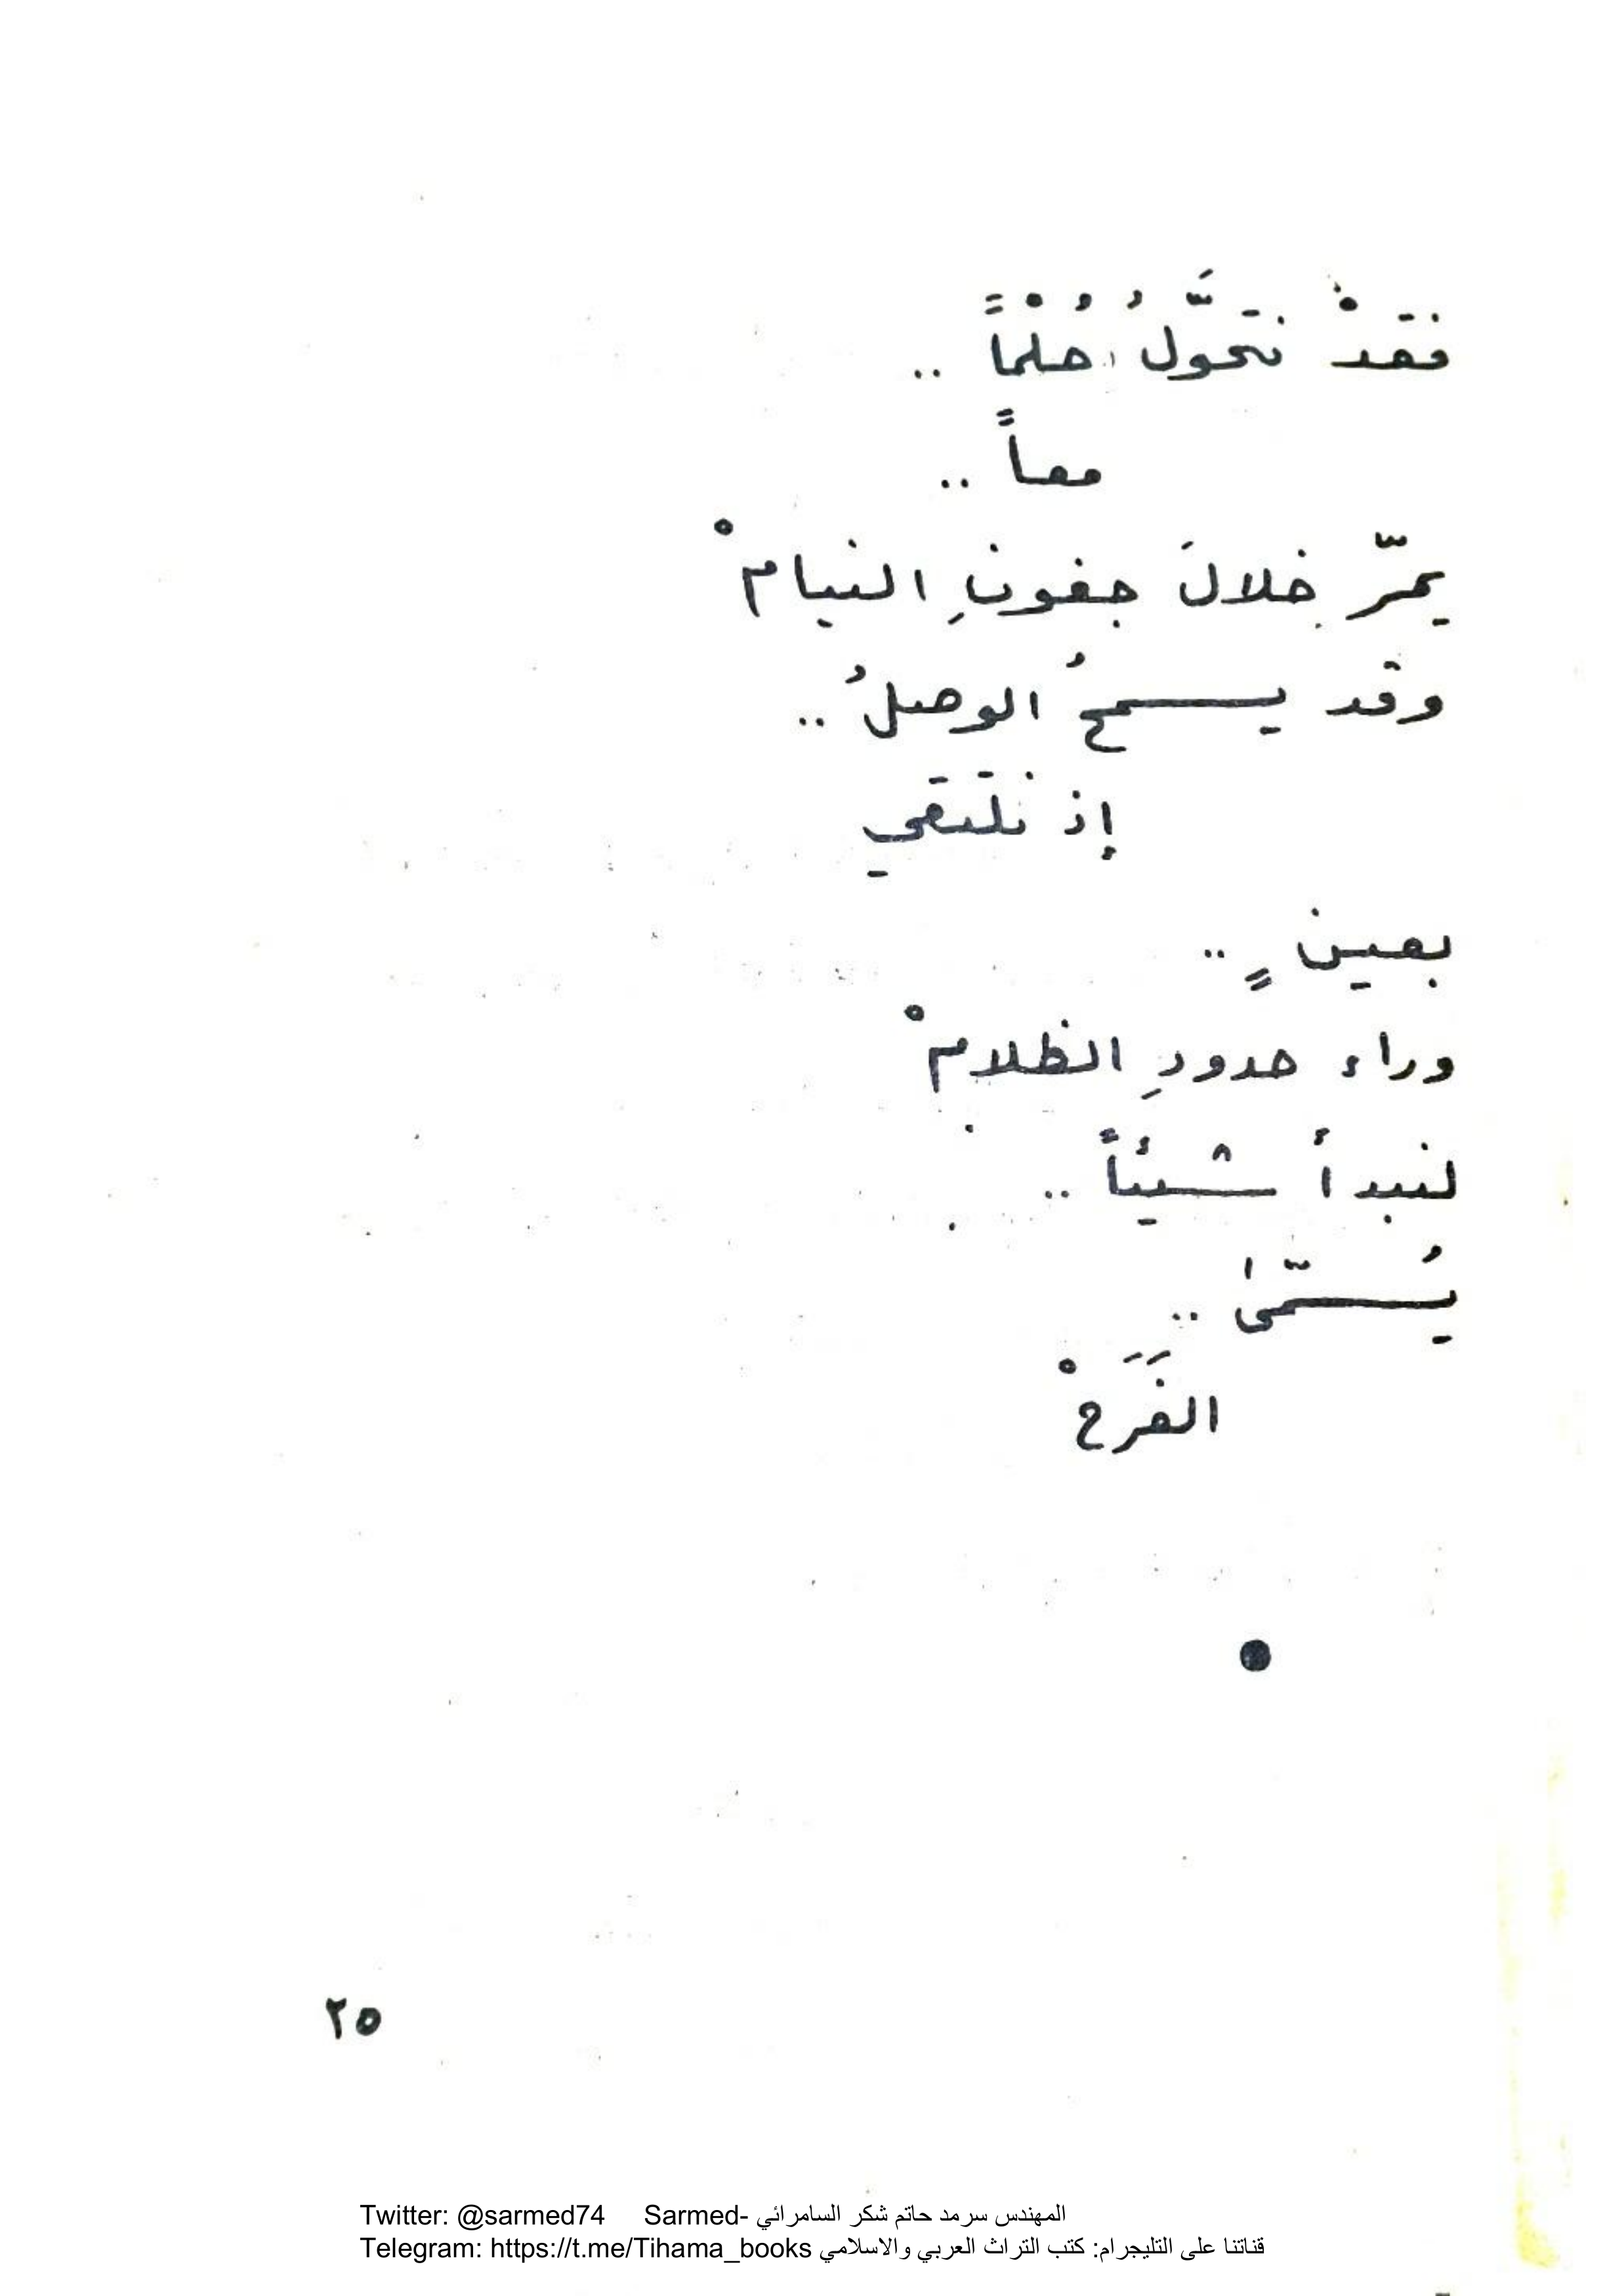 فقدْ نتحَوَّلُ حُلْمًا ..
معاً ..
يمرّ خلالَ جفونِ النيامْ
وقد يسمحُ الوصلُ ..
إذ نلتقي
بعينٍ ..
وراء حدودِ الظلامْ
لنبدأ شيئاً ..
يُسمّى ..
الفَرَحْ
●
٢٥
Twitter: @sarmed74 Sarmed- المهندس سرمد حاتم شكر السامرائي
Telegram: https://t.me/Tihama_books قناتنا على التليجرام: كتب التراث العربي والاسلامي